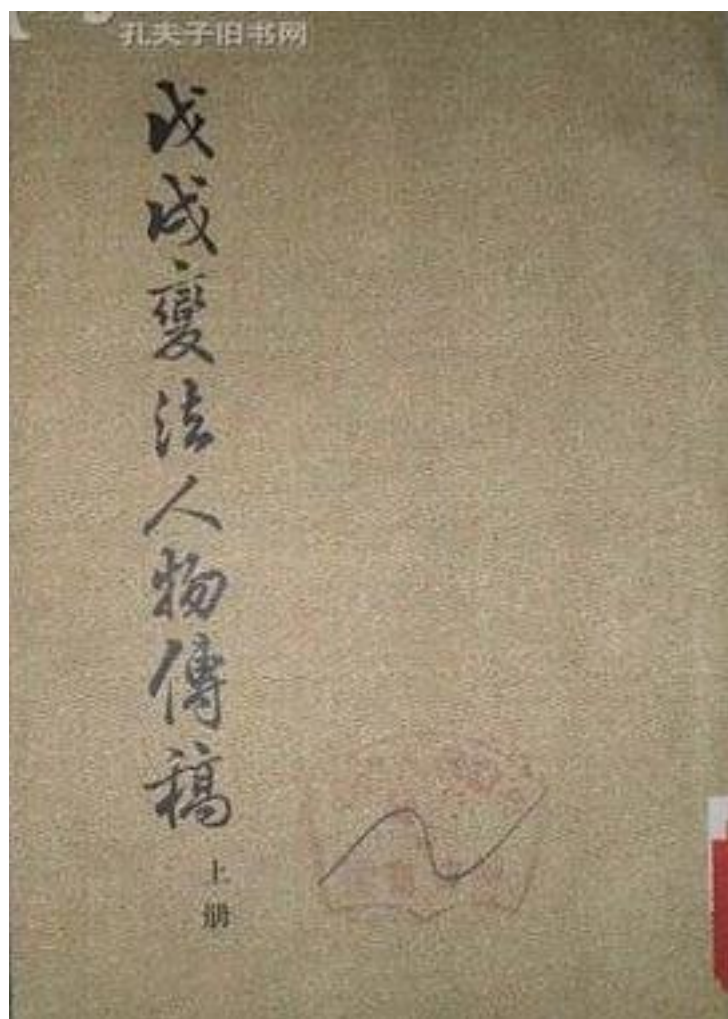 孔夫子旧书网
戊戌變法人物傳稿
上册